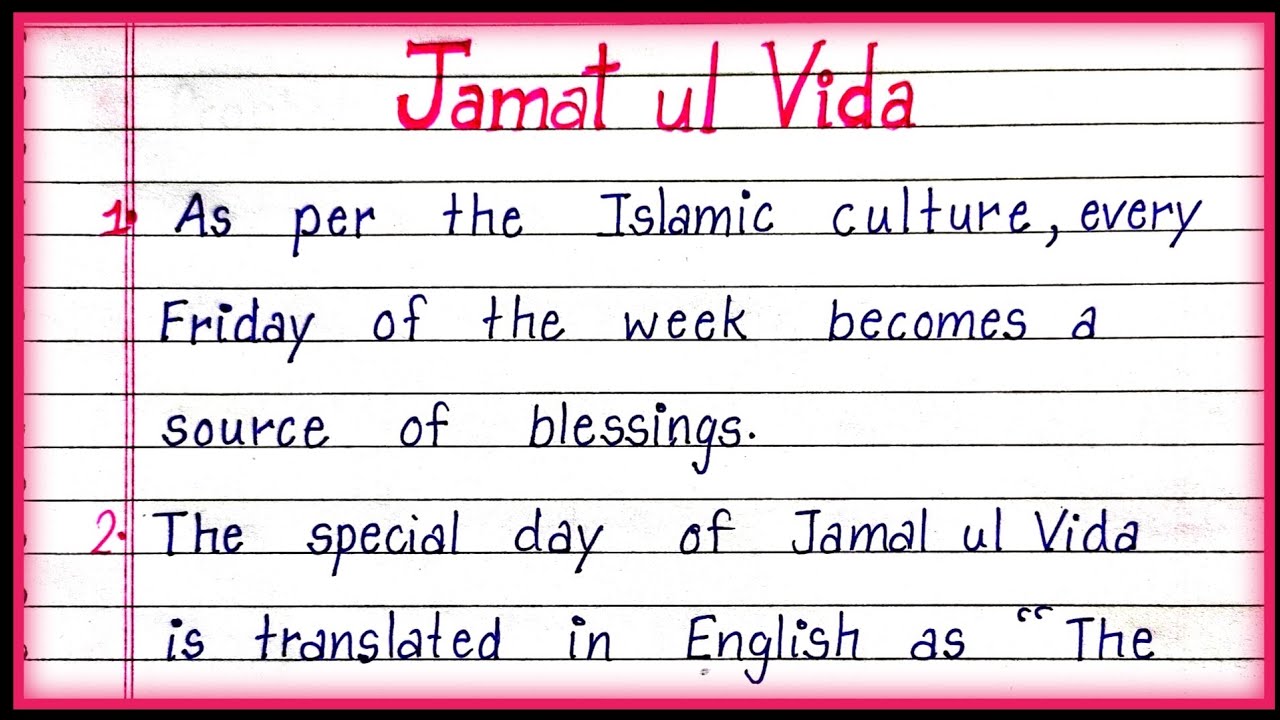 Jamat ul Vida
1. As per the Islamic culture, every
Friday of the week becomes a
source of blessings.
2. The special day of Jamal ul Vida
is translated in English as “The